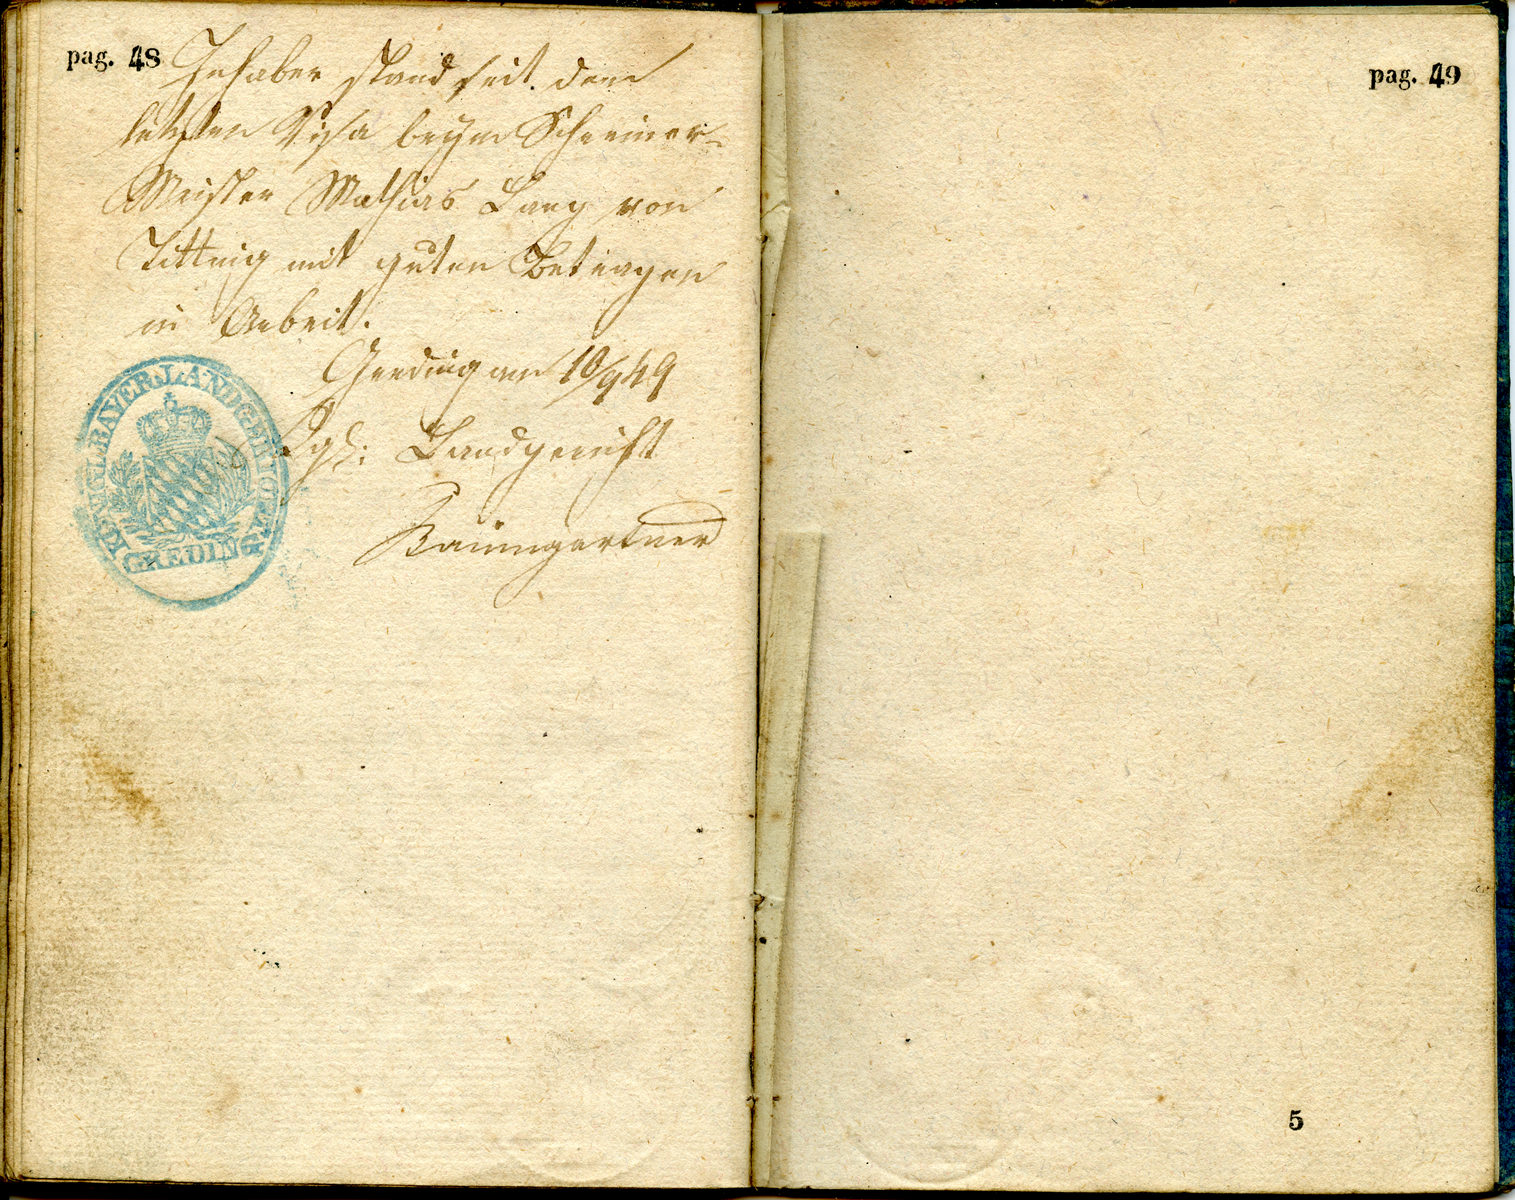 pag. 48
Inhaber stand seit dem
letzten Visa beym Schreiner-
Meister Mathias Lang von
Titting mit guten Betragen
in Arbeit.
Greding am 10/9 49
Kgl: Landgericht
Baumgartner
KÖNIGL. BAYER. LANDGERICHT
GREDING
pag. 49
5